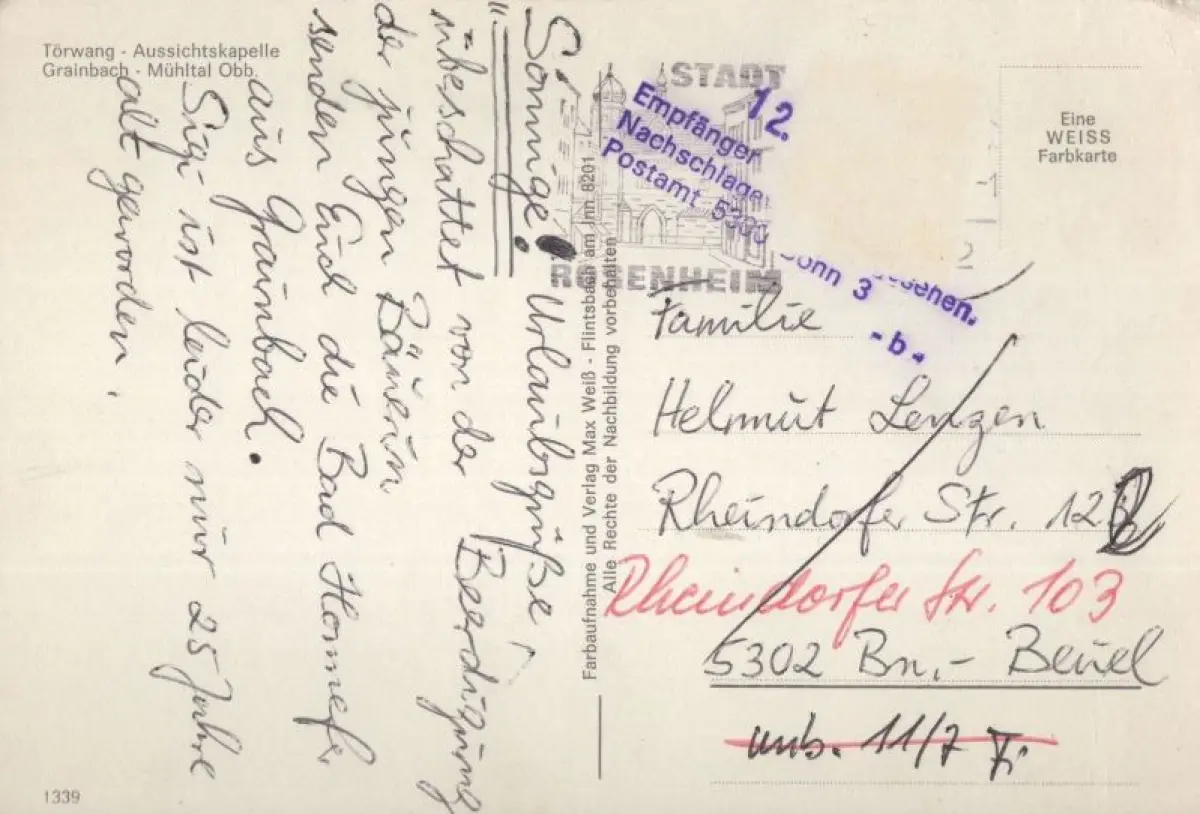 Törwang - Aussichtskapelle
Grainbach - Mühltal Obb.
"Sonnige!" Urlaubsgrüße!
überschattet von der Beerdigung
der jungen Bäuerin
senden Euch die Bad Honnefer
aus Grainbach.
Sigi ist leider nur 25 Jahre
alt geworden.
1339
Farbaufnahme und Verlag Max Weiß - Flintsbach am Inn 8201
Alle Rechte der Nachbildung vorbehalten
STADT
ROSENHEIM
12.
Empfänger
Nachschlage
Postamt 5300 Bonn 3
-b.
Eine
WEISS
Farbkarte
Familie
Helmut Lenzen
Rheindorfer Str. 12
Rheindorfer Str. 103
5302 Bn.- Beuel
unb. 11/7